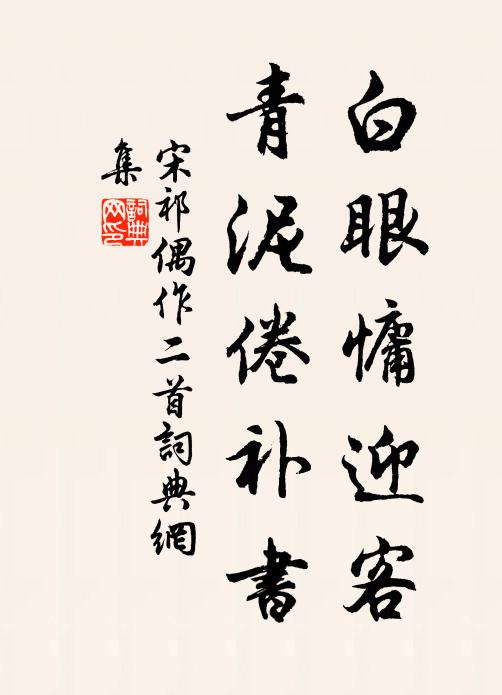 白眼慵迎客
青泥倦补書
宋祁偶作二首詞典網
集
詞典
网印